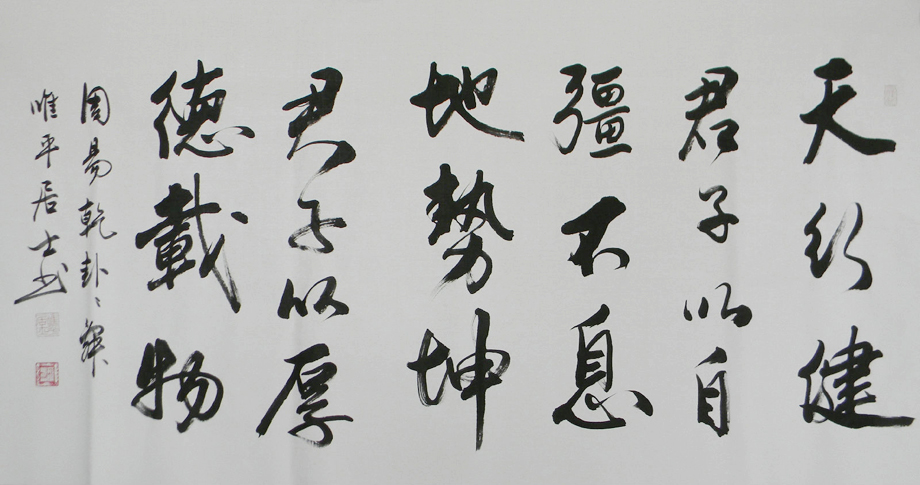 天行健
君子以自
彊不息
地勢坤
君子以厚
德載物
周易乾卦之辭
唯平居士书